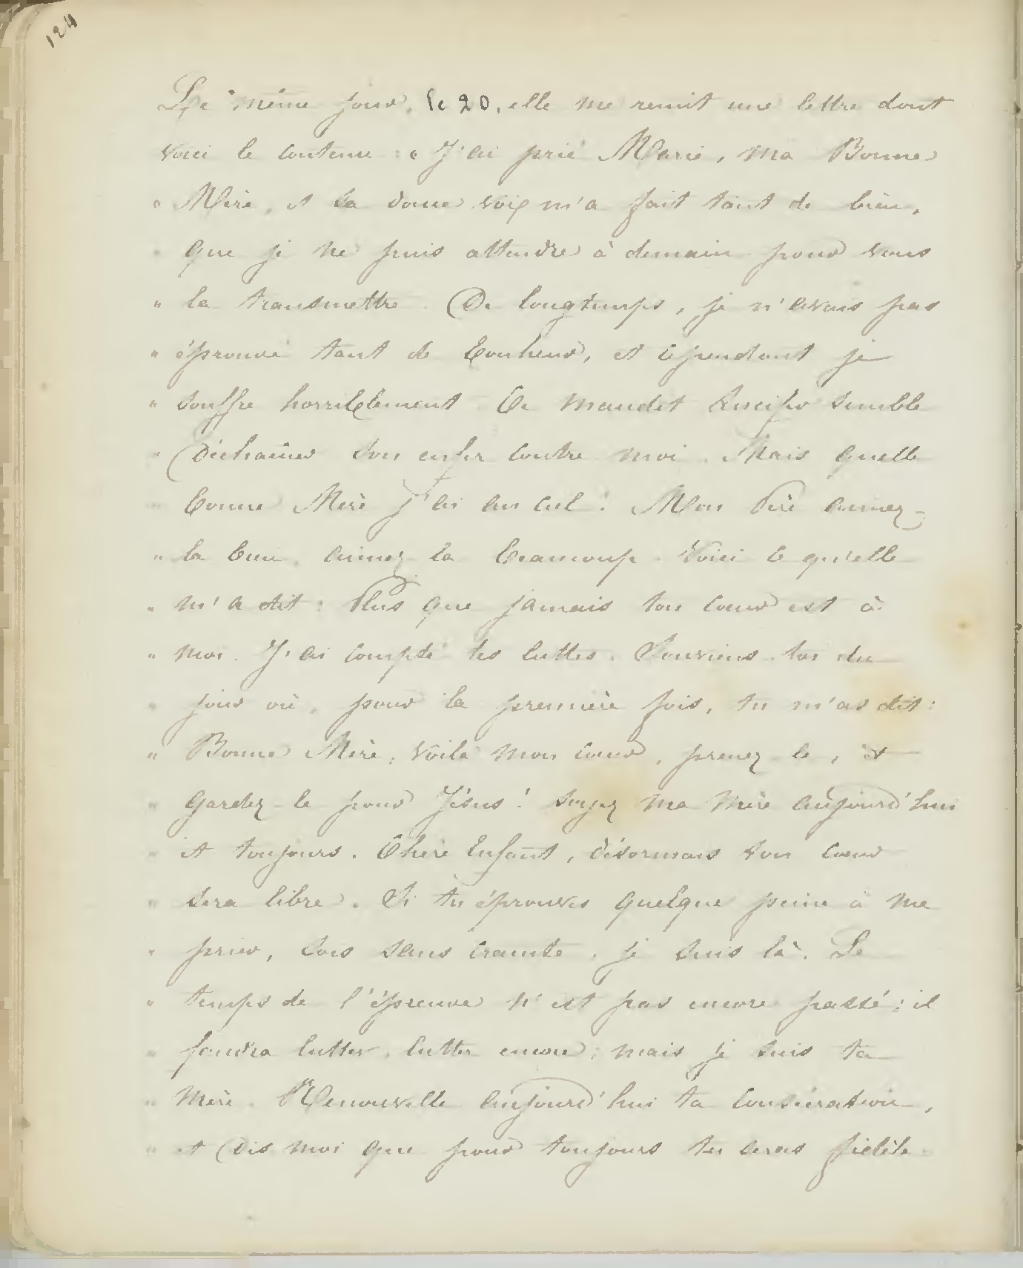 124
Le même jour, le 20, elle me remit une lettre dont
voici le contenu : « J'ai prié Marie, ma Bonne
" Mère, et sa douce voix m'a fait tant de bien,
" que je ne puis attendre à demain pour vous
" la transmettre. De longtemps, je n'avais pas
" éprouvé tant de bonheur, et cependant je
" souffre horriblement. Ce maudit Lucifer semble
" Déchaîner son enfer contre moi. Mais quelle
" bonne Mère j'ai au ciel ! Mon Père aimez-
" la bien, aimez la beaucoup. Voici ce qu'elle
" m'a dit : Plus que jamais ton cœur est à
" moi. J'ai compté tes luttes. Souviens-toi du
" jour où, pour la première fois, tu m'as dit :
" Bonne Mère, voilà mon cœur, prenez-le, et
" gardez-le pour Jésus ! Soyez ma mère aujourd'hui
" et toujours. Chère Enfant, désormais ton cœur
" sera libre. Si tu éprouves quelque peine à me
" prier, sois sans crainte, je suis là. Le
" temps de l'épreuve n'est pas encore passé ; il
" faudra lutter, lutter encore ; mais je suis ta
" Mère. Renouvelle aujourd'hui ta consécration,
" et Dis moi que pour toujours tu seras fidèle.